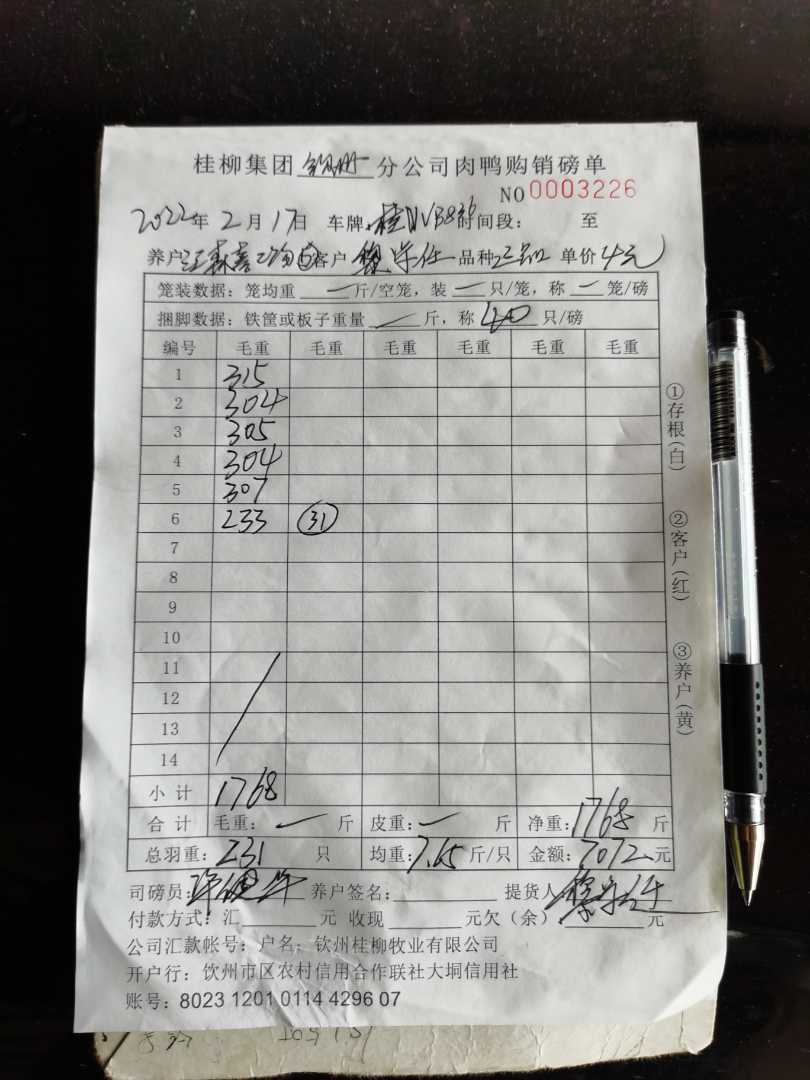 桂柳集团 钦州 分公司肉鸭购销磅单
NO 0003226
2022年2月17日 车牌:桂NVB 时间段: 至
养户 客户 守任 品种正品 单价4元
笼装数据:笼均重 一 斤/空笼,装 一 只/笼,称 一 笼/磅
捆脚数据:铁筐或板子重量 一 斤,称 40 只/磅
编号 毛重 毛重 毛重 毛重 毛重 毛重
1 315
2 304
3 305
4 304
5 307
6 233 31
7
8
9
10
11
12
13
14
小计 1768
合计 毛重: 一 斤 皮重: 一 斤 净重: 1768 斤
总羽重: 231 只 均重: 7.65 斤/只 金额: 7072 元
司磅员: 养户签名: 提货人
付款方式:汇 元 收现 元欠(余) 元
公司汇款帐号:户名:钦州桂柳牧业有限公司
开户行:饮州市区农村信用合作联社大垌信用社
账号:8023 1201 0114 4296 07
①存根(白)
②客户(红)
③养户(黄)